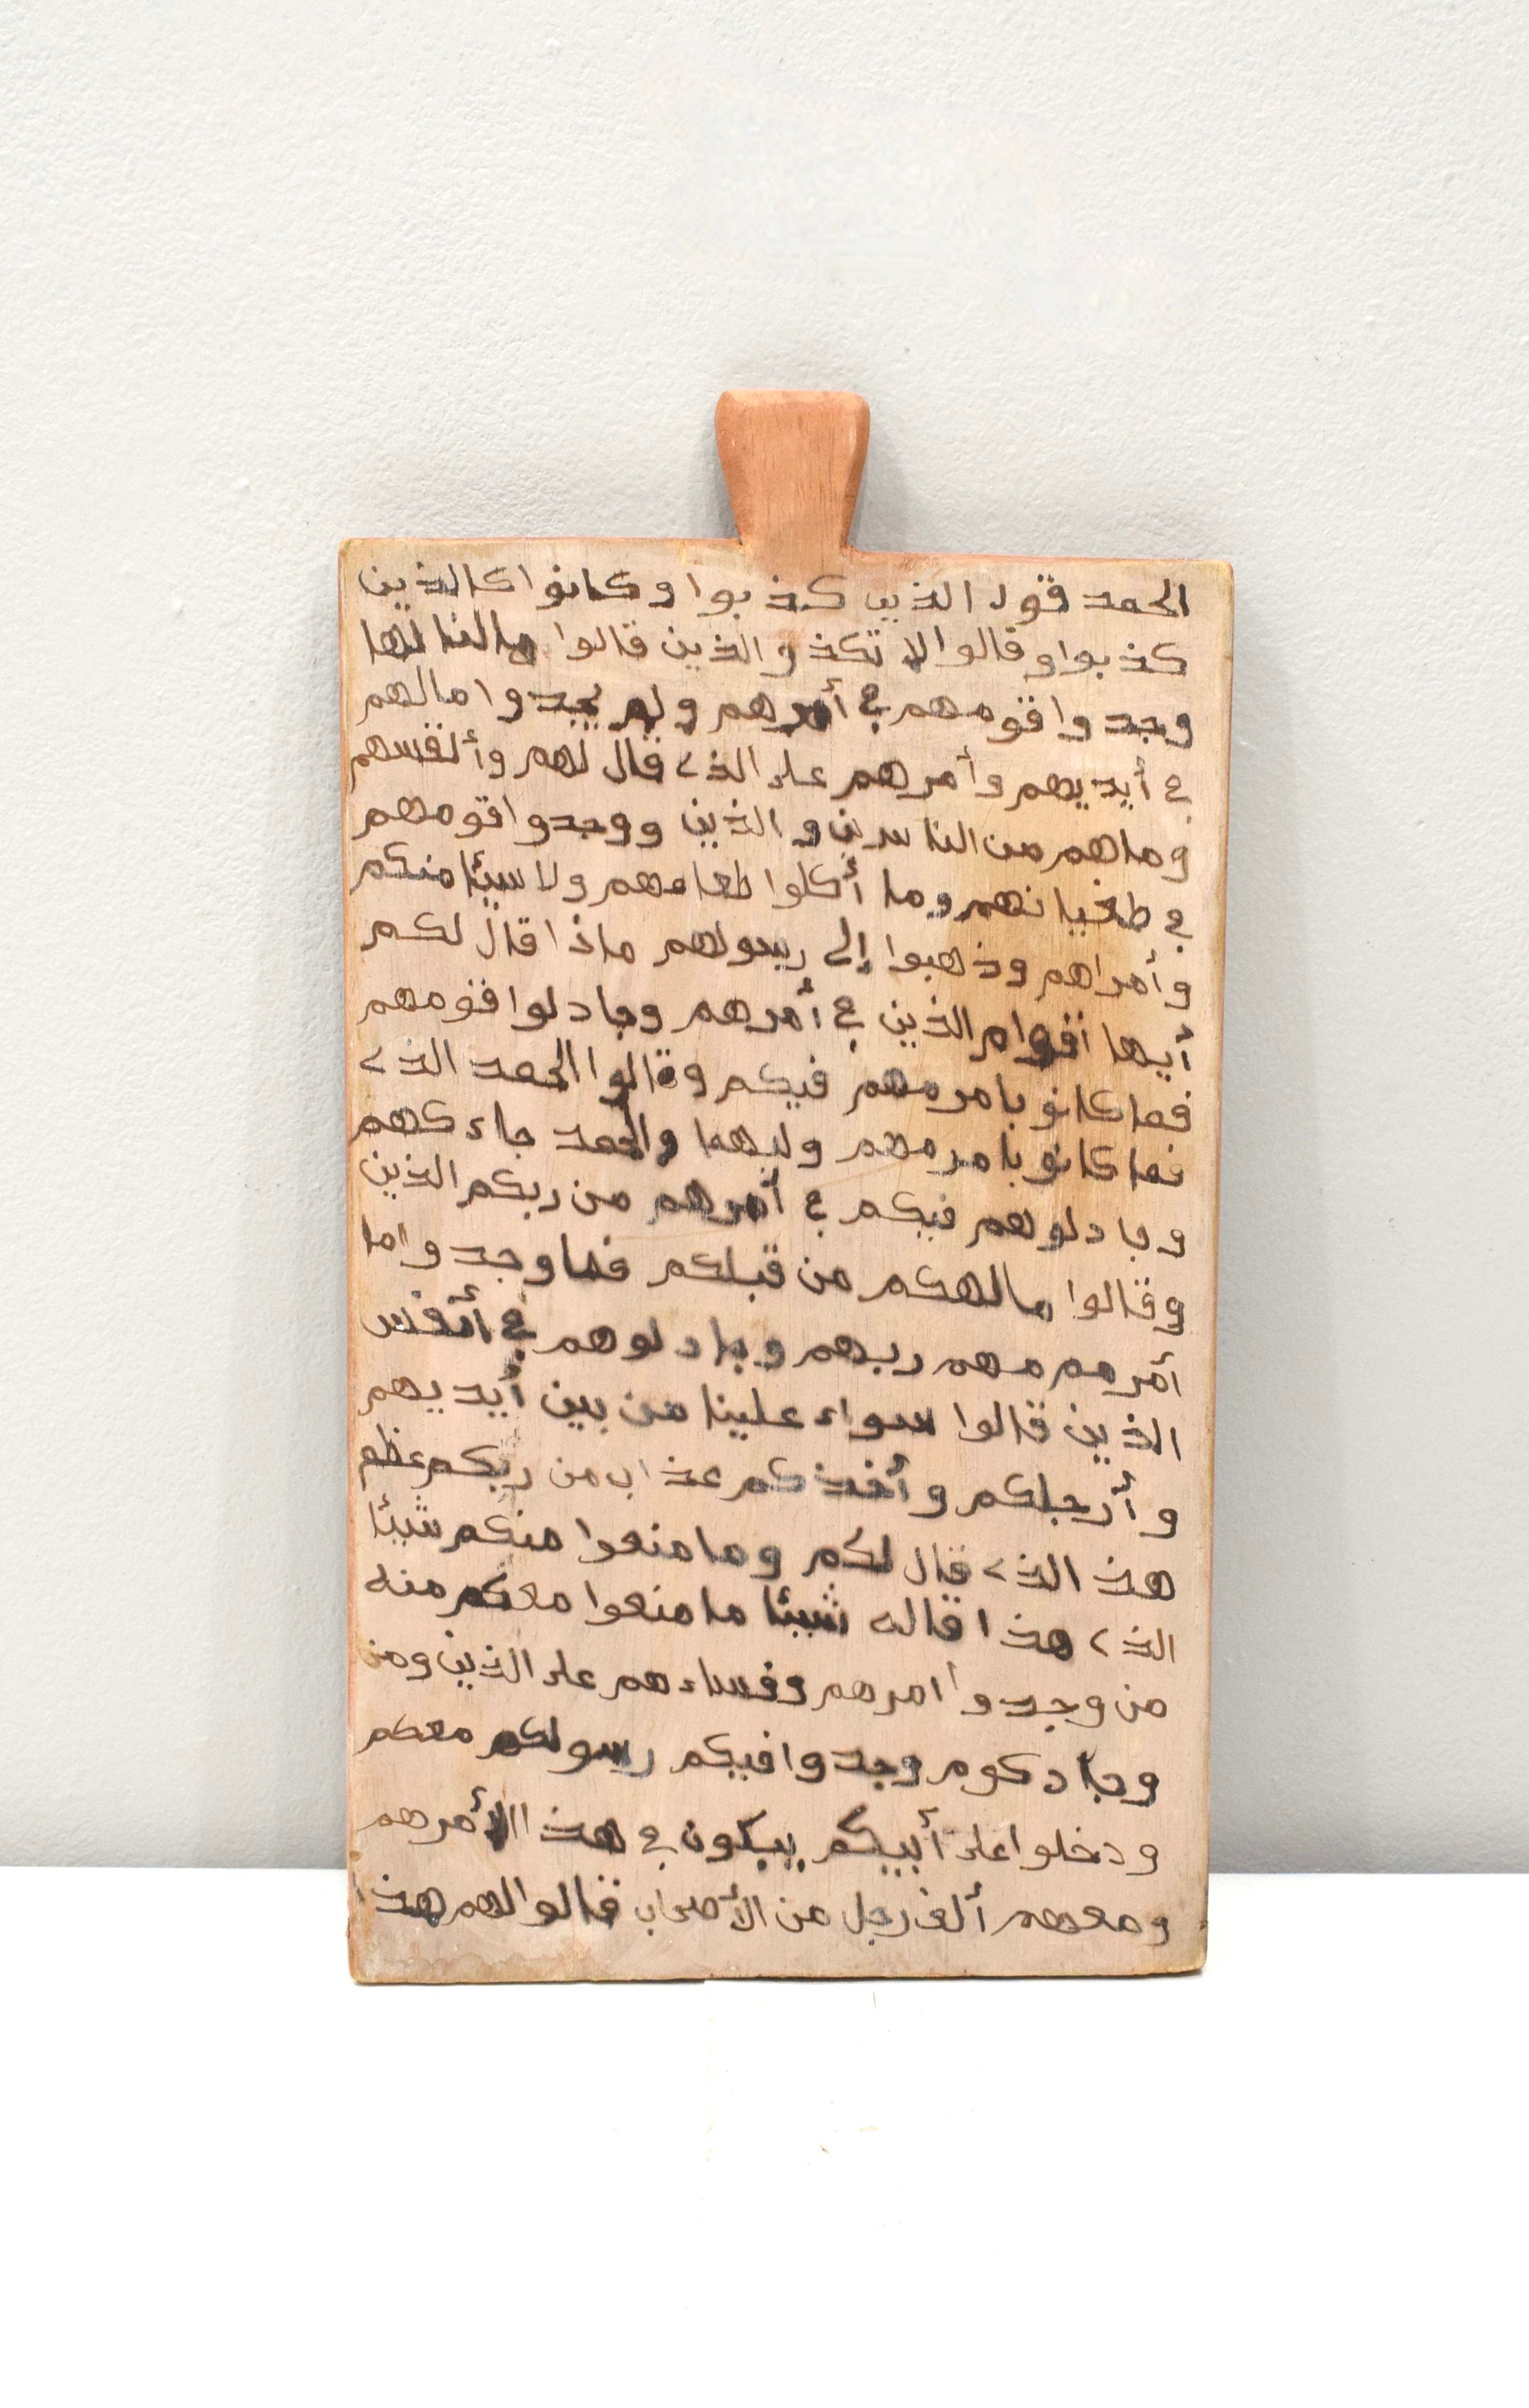 الحمد قول الذين كذبوا وكانوا كالذين
كذبوا وقالوا لا تكذ والذين قالوا مالنا لها
وجدوا قومهم في أمرهم ولم يجدوا مالهم
في أيديهم وأمرهم على الذي قال لهم وأنفسهم
وماهم من الناس والذين ووجدوا قومهم
في طغيانهم وما أكلوا طعامهم ولا سيئا منكم
وأمراهم وذهبوا إلى رسولهم ماذا قال لكم
أيها أقوام الذين في أمرهم وجادلوا قومهم
فما كانو بامرمهم فيكم وقالوا الحمد الذي
فما كانو بامرمهم وليهما والحمد جاءكهم
وجادلوهم فيكم في أمرهم من ربكم الذين
وقالوا مالهكم من قبلكم فما وجدوا ما
أمرهم مهم ربهم وجادلوهم في أنفس
الذين قالوا سواء علينا من بين أيديهم
وأرجلكم وأخذكم عذاب من ربكم عظم
هذ الذي قال لكم وما منعوا منكم شيئا
الذي هذا قاله شيئا ما منعوا معكم منه
من وجدوا أمرهم وفساءهم على الذين ومن
وجادكوم وجدوا فيكم رسولكم معكم
ودخلوا على أبيكم يبكون في هذا الأمرهم
ومعهم ألف رجل من الأصحاب قالوا لهم هذا